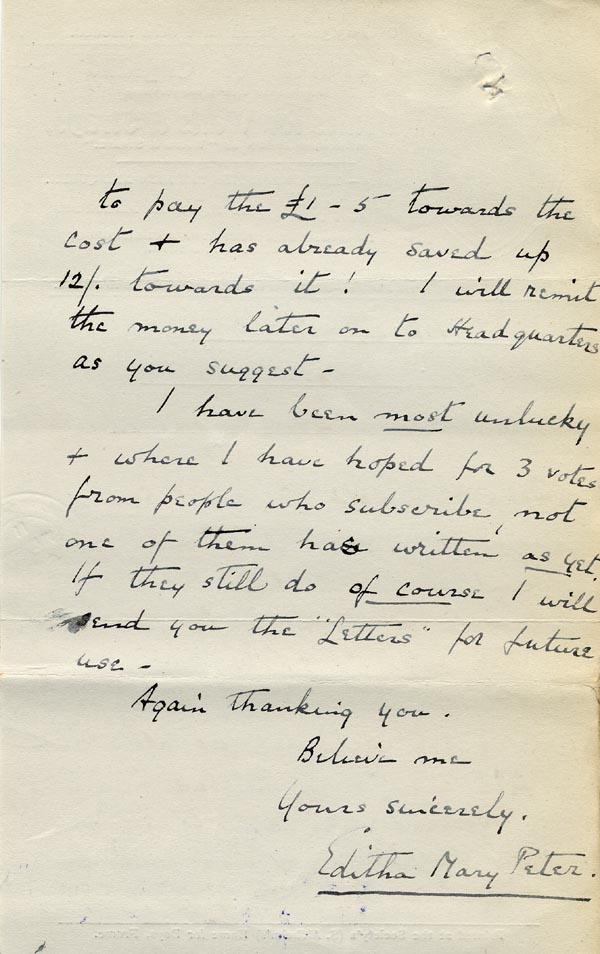 to pay the £1 - 5 towards the
cost + has already saved up
12/. towards it! I will remit
the money later on to Headquarters
as you suggest -
I have been most unlucky
+ where I have hoped for 3 votes
from people who subscribe, not
one of them has written as yet.
If they still do of course I will
send you the "Letters" for future
use -
Again thanking you.
Believe me
Yours sincerely.
Editha Mary Peter.